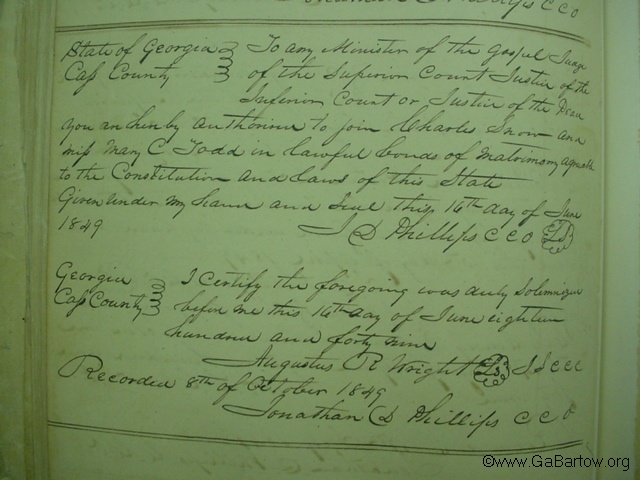 State of Georgia
Cass County
To any Minister of the Gospel Judge
of the Superior Court Justice of the
Inferior Court or Justice of the Peace
you are hereby authorised to join Charles Snow and
miss Mary C Todd in lawful bonds of Matrimony
to the Constitution and Laws of this State
Given under my hand and seal this 16th day of June
1849
J D Phillips C C O LS
Georgia
Cass County
I certify the foregoing was duly solemnized
before me this 16th day of June eighteen
hundred and forty nine
Augustus R Wright LS
Recorded 8th of October 1849
Jonathan D Phillips C C O
©www.GaBartow.org